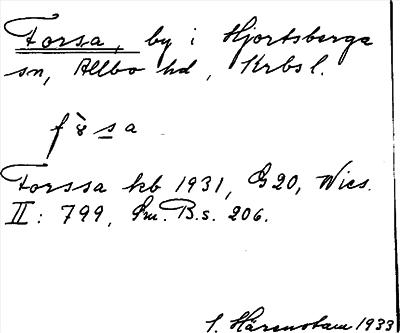 Forsa, by i Hjortsberga
sn, Allbo hd, Krbs l.
fò̀sa
Forssa kb 1931, G20, Wies.
II: 799, Sm. B.s. 206.
S. Härenstam 1933